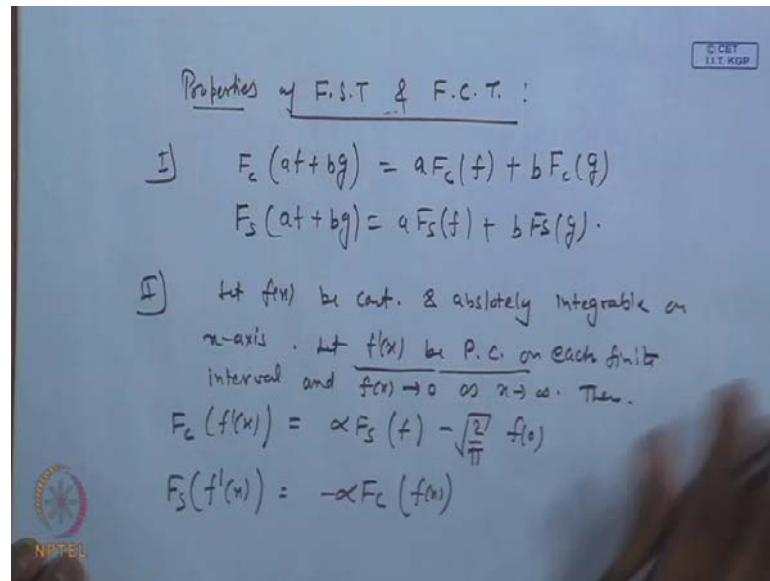 © CET
I.I.T. KGP
Properties of F.S.T & F.C.T. :
I) F_c (af + bg) = a F_c(f) + b F_c(g)
F_s (af + bg) = a F_s(f) + b F_s(g).
II) Let f(x) be cont. & abslotely integrable on
x-axis. Let f'(x) be P.C. on each finite
interval and f(x) → 0 as x → ∞. Then.
F_c (f'(x)) = α F_s (f) - √(2/π) f(0)
F_s (f'(x)) = -α F_c (f(x))
NPTEL